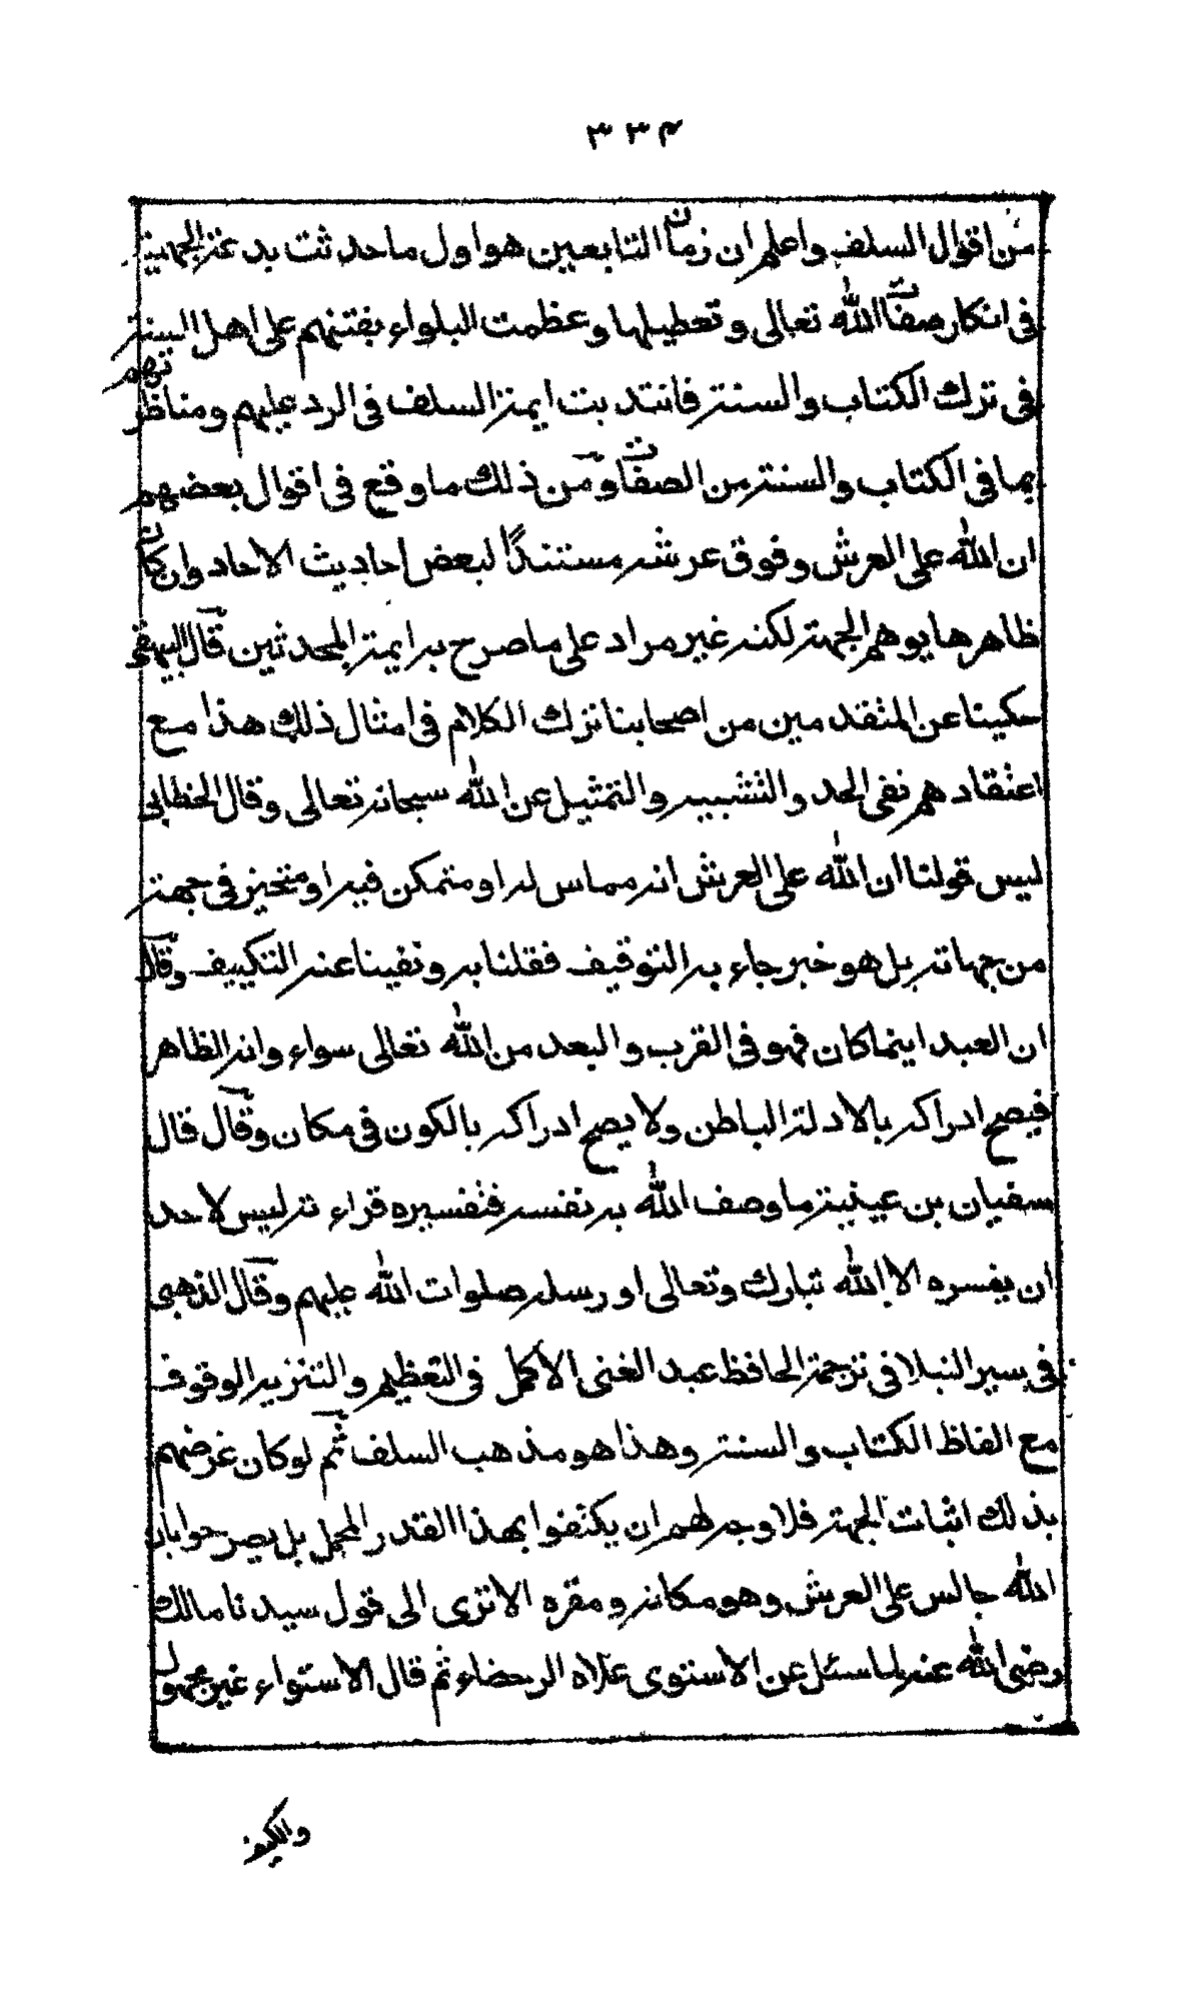 ٣٣٤
من اقوال السلف واعلم ان زمان التابعين هو اول ما حدثت بدعة الجهمية
فى انكار صفات الله تعالى وتعطيلها وعظمت البلواء بفتنهم على اهل السنة
فى ترك الكتاب والسنة فانتدبت ايمة السلف فى الرد عليهم ومناظرتهم
بما فى الكتاب والسنة من الصفات ومن ذلك ما وقع فى اقوال بعضهم
ان الله على العرش وفوق عرشه مستندًا لبعض احاديث الاحاد وان كان
ظاهرها يوهم الجهة لكنه غير مراد على ما صرح به ايمة المحدثين قال البيهقى
حكينا عن المتقدمين من اصحابنا ترك الكلام فى امثال ذلك هذا مع
اعتقادهم نفى الحد والتشبيه والتمثيل عن الله سبحانه تعالى وقال الخطابى
ليس قولنا ان الله على العرش انه مماس له او متمكن فيه او متحيز فى جهة
من جهاته بل هو خبر جاء به التوقيف فقلنا به ونفينا عنه التكييف وقال
ان العبد اينما كان فهو فى القرب والبعد من الله تعالى سواء وانه الظاهر
فيصح ادراكه بالادلة الباطن ولا يصح ادراكه بالكون فى مكان وقال قال
سفيان بن عيينة ما وصف الله به نفسه فتفسيره قراءته ليس لاحد
ان يفسره الا الله تبارك وتعالى او رسله صلوات الله عليهم وقال الذهبى
فى سير النبلا فى ترجمة الحافظ عبد الغنى الأكمل فى التعظيم والتنزيه الوقوف
مع الفاظ الكتاب والسنة وهذا هو مذهب السلف ثم لو كان غرضهم
بذلك اثبات الجهة فلا وجه لهم ان يكتفوا بهذا القدر المجمل بل يصرحوا بان
الله جالس على العرش وهو مكانه ومقره الا ترى الى قول سيدنا مالك
رضى الله عنه لما سئل عن الاستوى علاه الرحضاء ثم قال الاستواء غير مجهول
والكيف